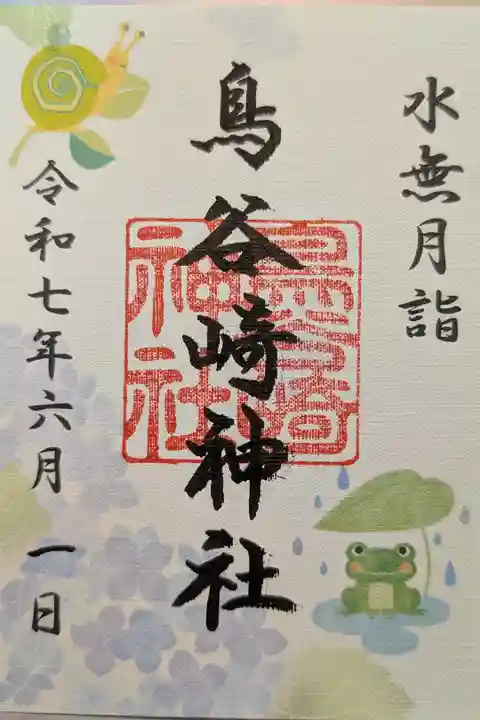 水無月詣
鳥谷崎神社
鳥谷崎
神社
令和七年六月一日